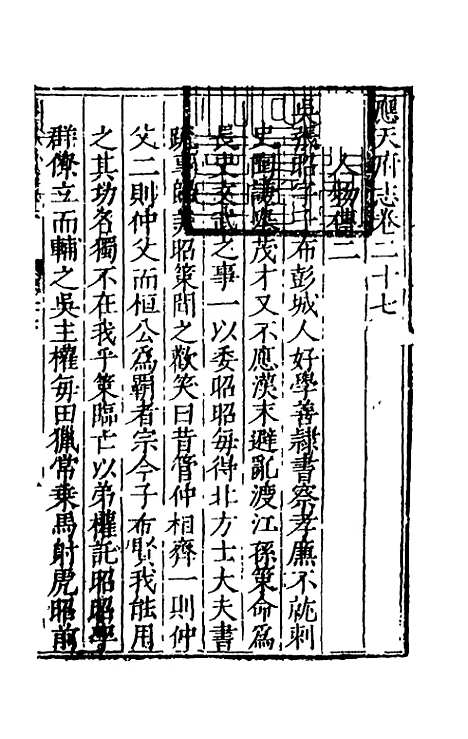 應天府志卷二十七
人物傳二
吳張昭字子布彭城人好學善隸書察孝廉不就刺
史陶謙舉茂才又不應漢末避亂渡江孫策命爲
長史文武之事一以委昭昭每得北方士大夫書
疏專歸美昭策聞之歡笑曰昔管仲相齊一則仲
父二則仲父而恒公爲霸者宗今子布賢我能用
之其功名獨不在我乎策臨亡以弟權託昭昭率
群僚立而輔之吳主權每田獵常乘馬射虎昭前